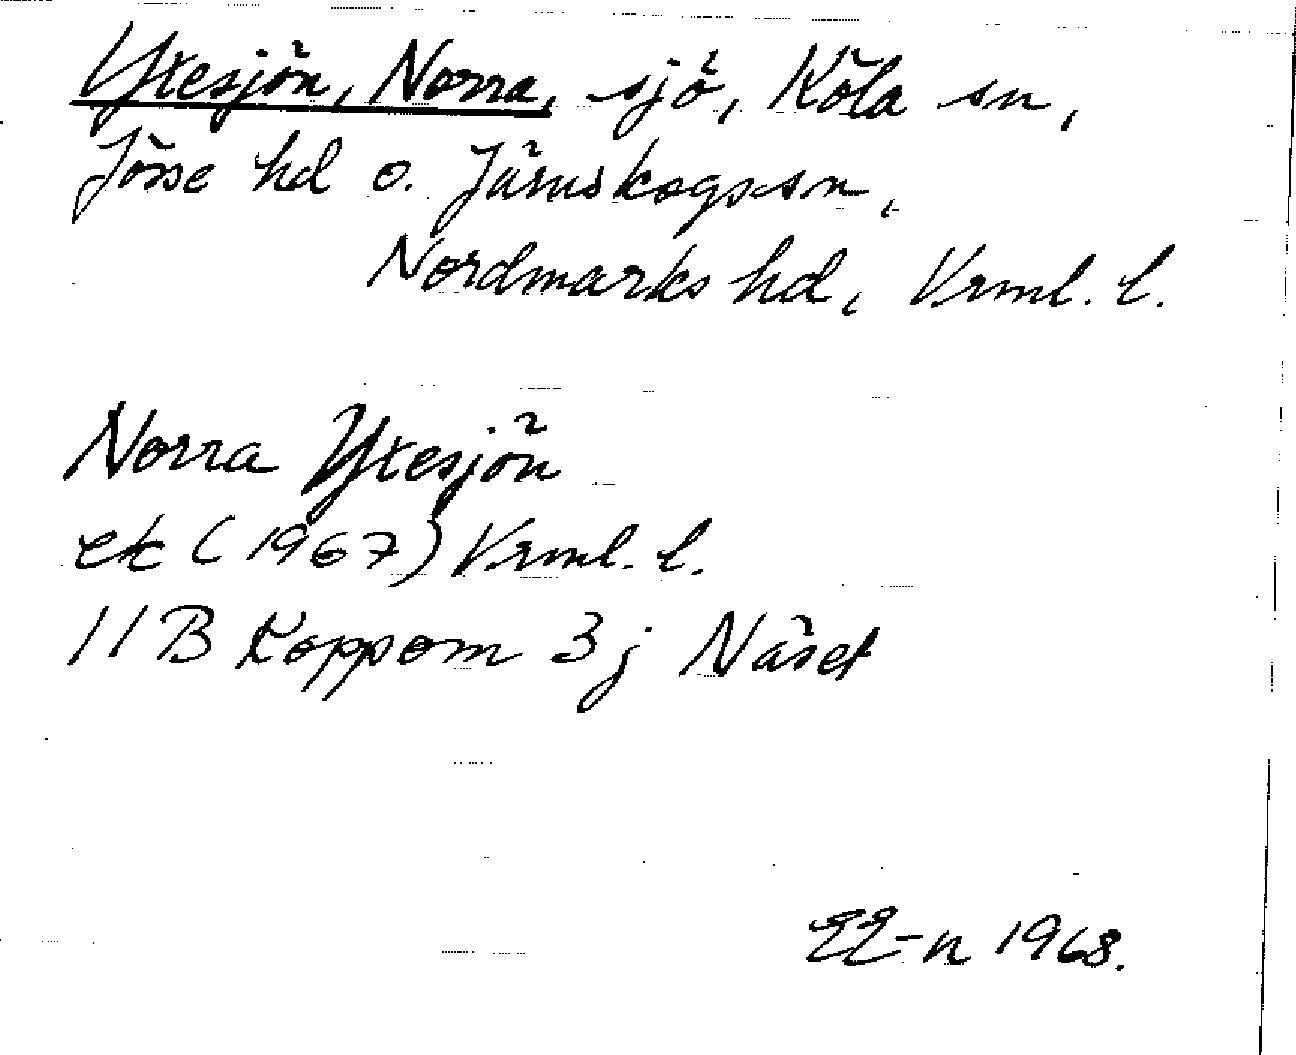 Ytesjön, Norra, sjö, Köla sn,
Jösse hd o. Järnskogs sn,
Nordmarks hd, Vrml. l.
Norra Ytesjön
ek (1967) Vrml. l.
11B Koppom 3j Näset
EE-n 1968.